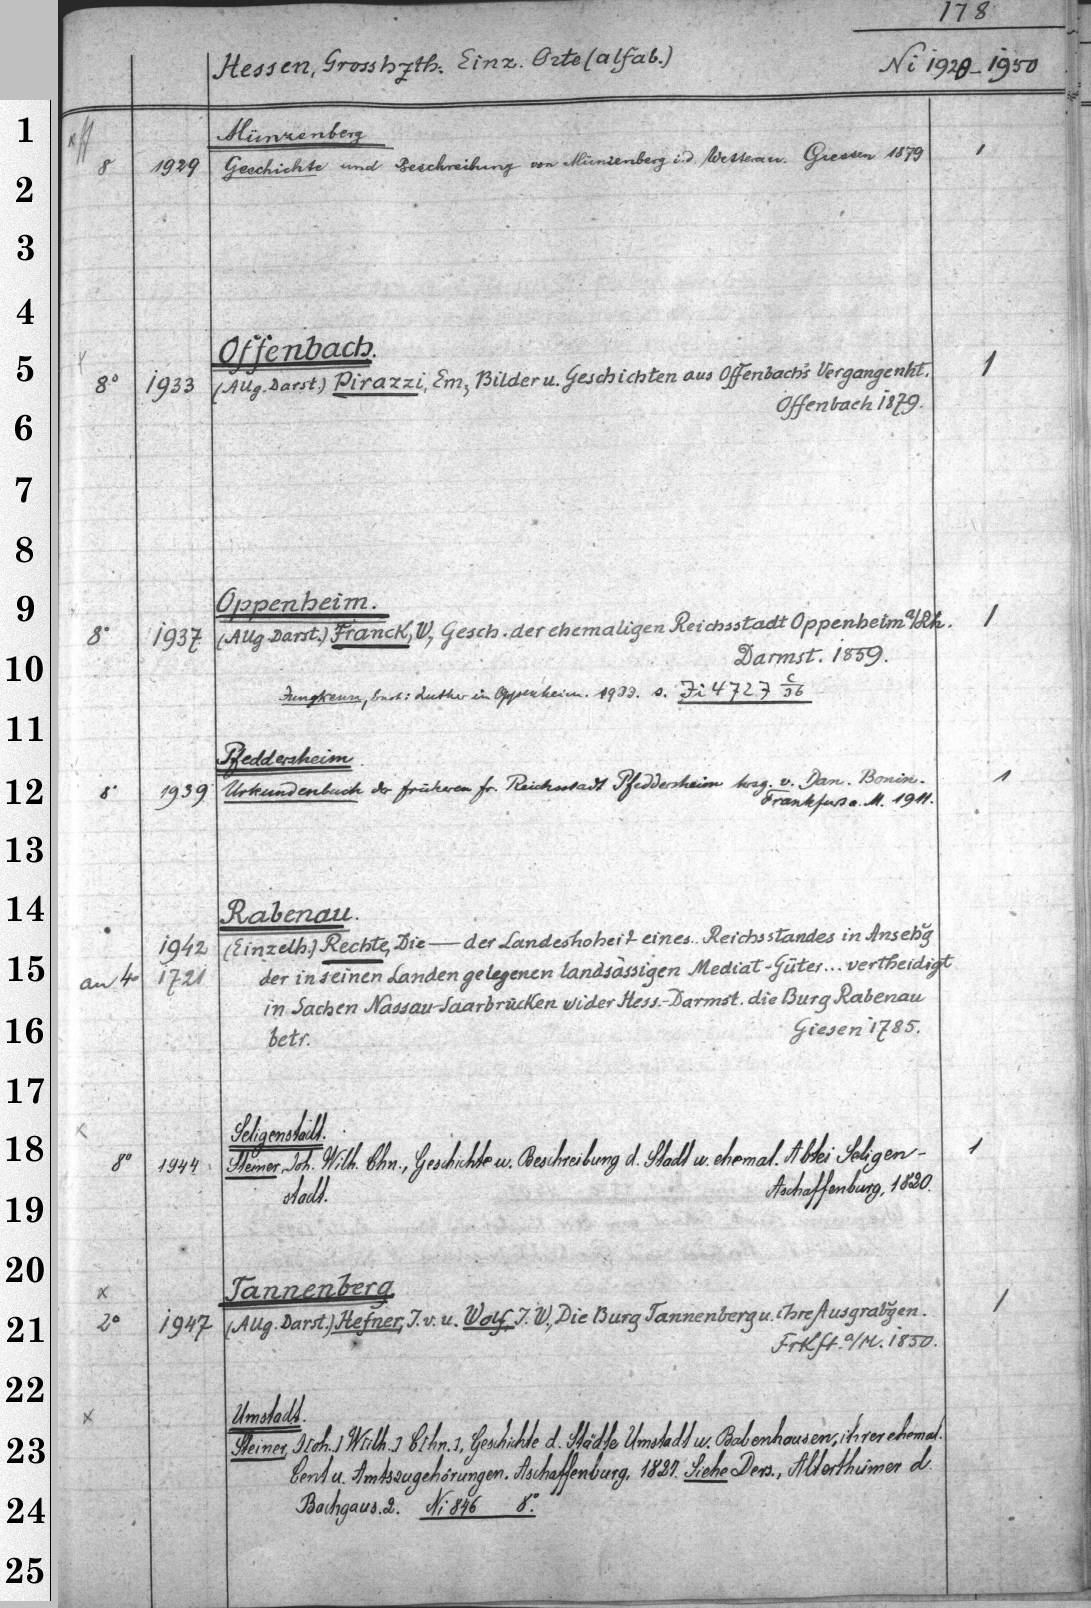 178
Hessen, Grosshzth. Einz. Orte (alfab.) Ni 1928-1950
1
Münzenberg
8 1929 Geschichte und Beschreibung von Münzenberg i.d. Wetterau. Giessen 1879 1
2
3
4
Offenbach.
5
8° 1933 (Allg. Darst.) Pirazzi, Em., Bilder u. Geschichten aus Offenbach's Vergangenht. 1
Offenbach 1879.
6
7
8
9 Oppenheim.
8° 1937 (Allg. Darst.) Franck, W., Gesch. der ehemaligen Reichsstadt Oppenheim a/Rh. 1
Darmst. 1859.
10
s. Ji 4727 c/36
11
Pfeddersheim
12 8° 1939 Urkundenbuch der früheren fr. Reichsstadt Pfeddersheim hrsg. v. Dan. Bonin. 1
Frankfurt a. M. 1911.
13
14 Rabenau.
1942 (Einzelh.) Rechte, Die — der Landeshoheit eines.. Reichsstandes in Ansehg
15 an 4° 1721 der in seinen Landen gelegenen landsässigen Mediat-Güter... vertheidigt
in Sachen Nassau-Saarbrücken wider Hess.-Darmst. die Burg Rabenau
16 betr. Giesen 1785.
17
Seligenstadt.
18 8° 1944 Steiner, Joh. Wilh. Chn., Geschichte u. Beschreibung d. Stadt u. ehemal. Abtei Seligen- 1
stadt. Aschaffenburg, 1820.
19
20
x Tannenberg
21 2° 1947 (Allg. Darst.) Hefner, J. v. u. Wolf, J. W., Die Burg Tannenberg u. ihre Ausgrabgen. 1
Frkft. a/M. 1850.
22
x Umstadt.
23 Steiner, J[oh.] W[ilh.] C[hn.], Geschichte d. Städte Umstadt u. Babenhausen, ihrer ehemal.
Cent u. Amtszugehörungen. Aschaffenburg, 1827. Siehe Ders., Alterthümer d.
24 Bachgaus. 2. Ni 846 8°
25